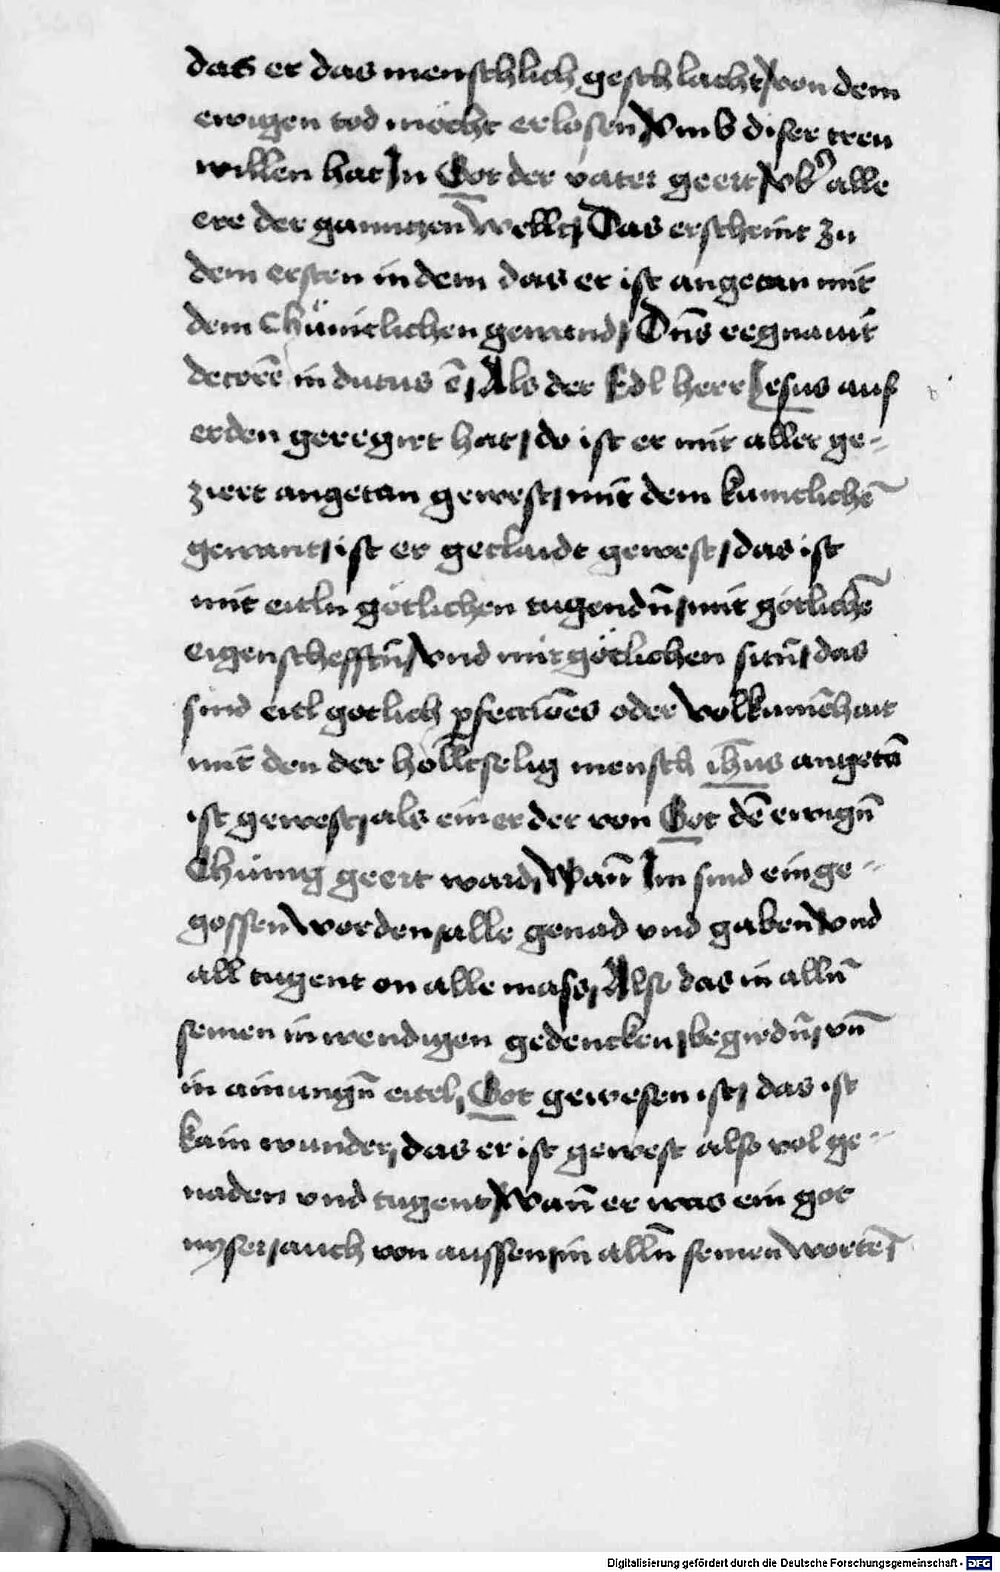 das er das menschlich geschlacht / von dem
ewigen tod möcht erlosen / Vmb diser treu
willen hat In Got der vater geert / vb̾ alle
ere der gannczen wellt / Das erscheint zu
dem ersten in dem das er ist angetan mit
dem Chüniclichen gewand / Dn̄s regnauit
decorē indutus ē / Als der Edl herr Jesus auf
erden geregirt hat / do ist er mit aller ge-
ziert angetan gewest / mit dem kuniclichē
gewant / ist er geclaidt gewest / das ist
mit eitln götlichen tugendn̄ / mit götlichē
eigenschefftn̄ / vnd mit götlichen sitn̄ / das
sind eitl gotlich ꝑfecciōes oder volkumēhait
mit den der hölltselig mensch ih̄us angetā
ist gewest / als einer der von Got dē ewign̄
Chünig geert ward / Wan̄ Im sind einge-
gossen worden / alle genad vnd gaben / vnd
all tugent on alle mass / Also das in alln̄
seinen inwendigen gedencken / begirdn̄ / vn̄
in ainungn̄ eitel / Got gewesen ist / das ist
kain wunder / das er ist gewest also vol ge-
naden vnd tugent / Wan̄ er was ein got
nyser / auch von aussen / in alln̄ seinen wortē
Digitalisierung gefördert durch die Deutsche Forschungsgemeinschaft - DFG